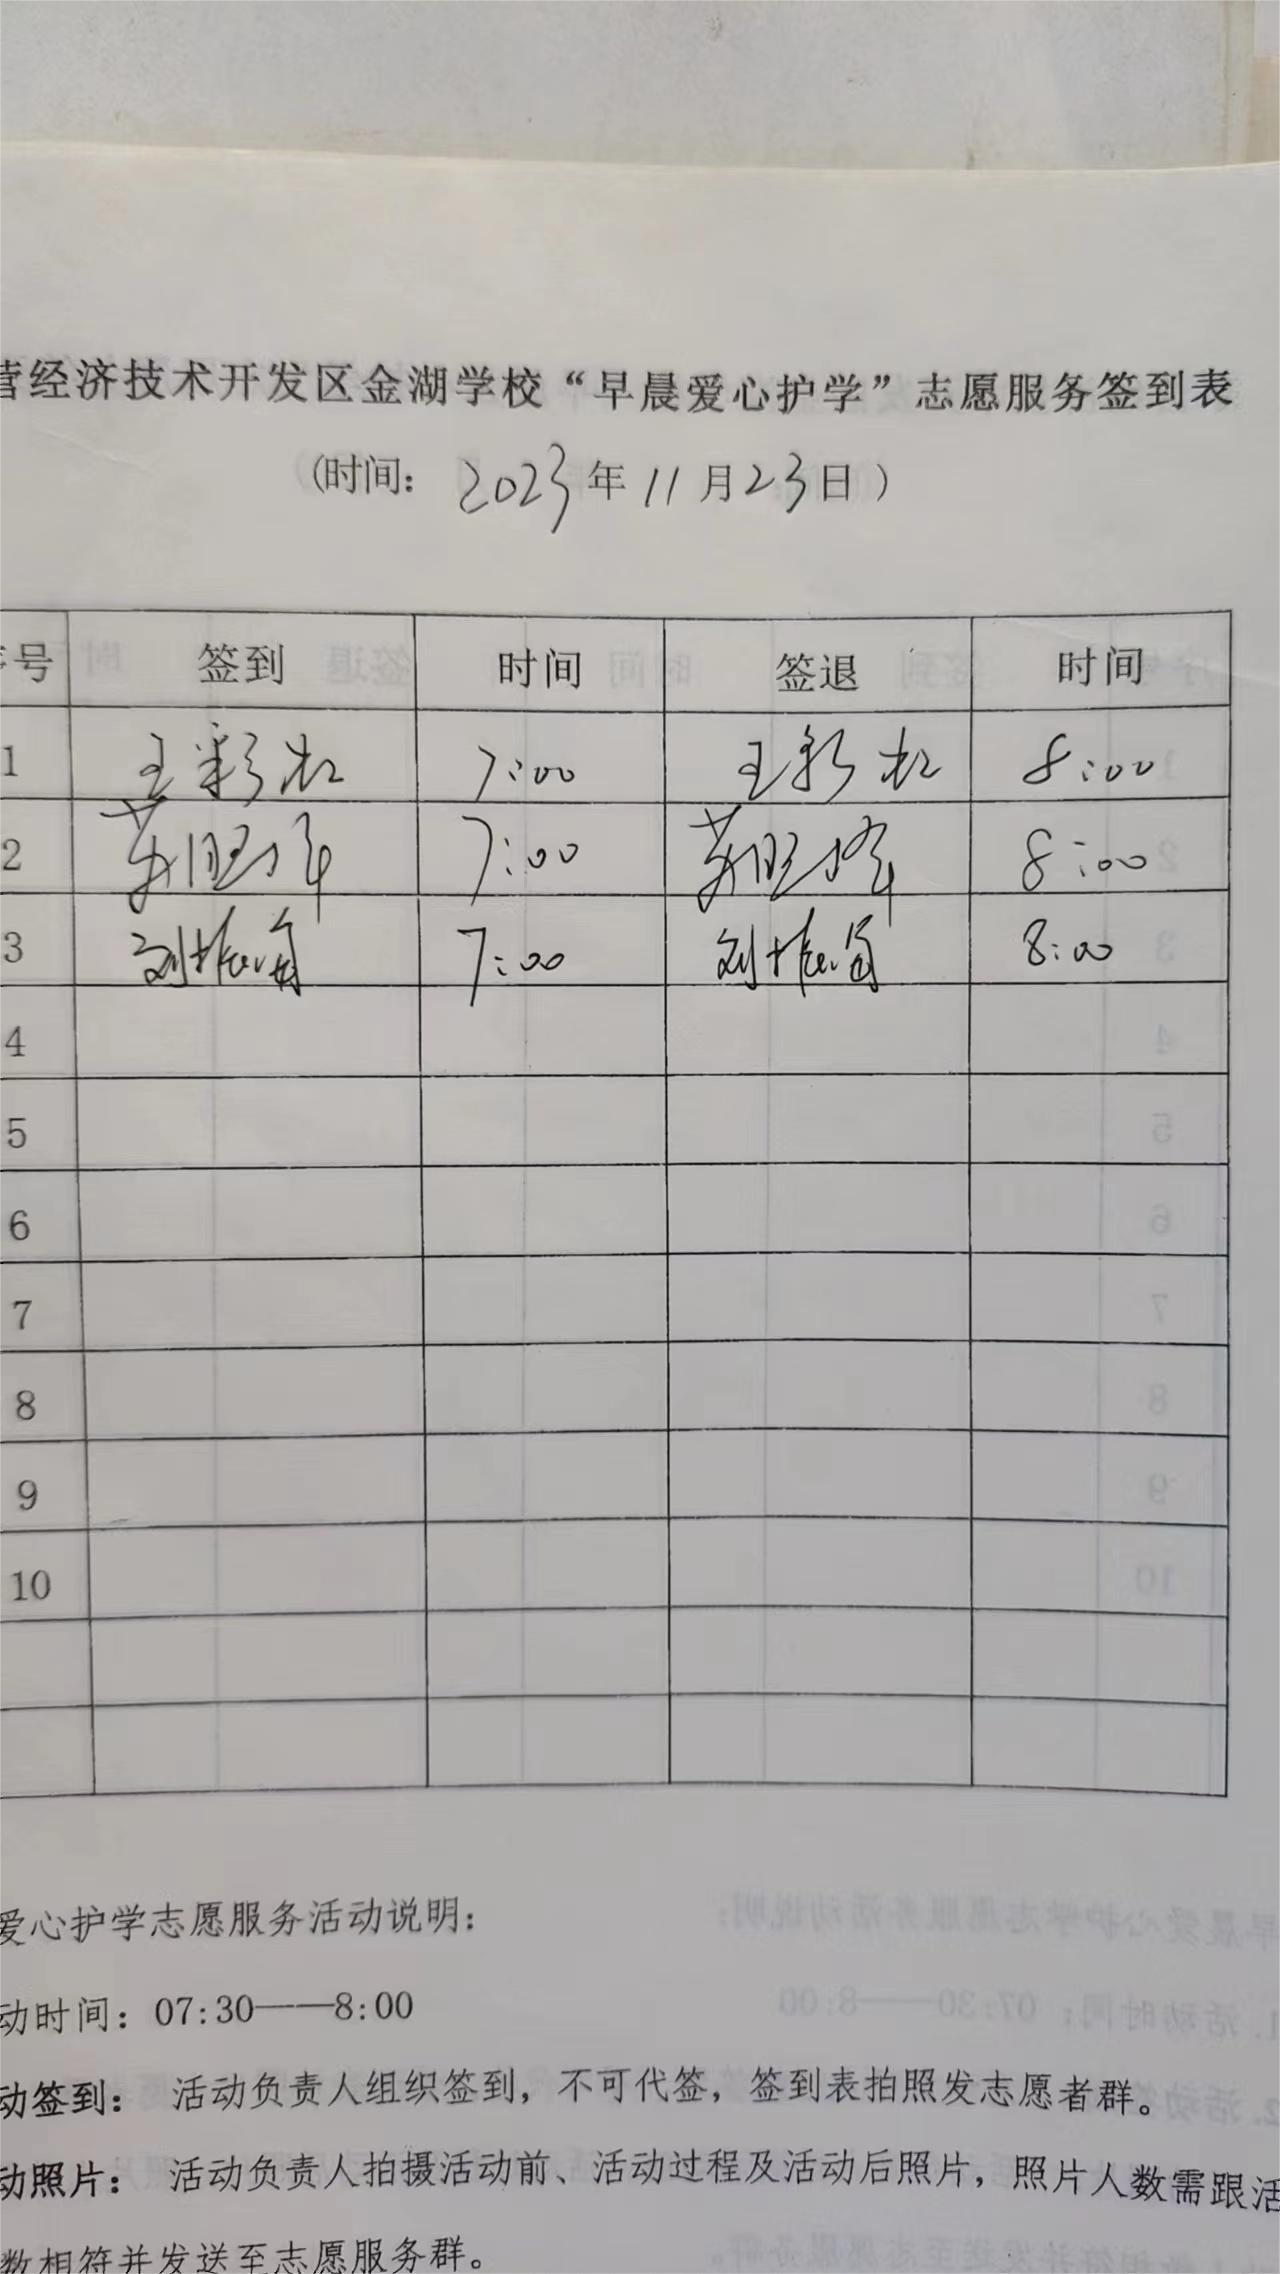 营经济技术开发区金湖学校“早晨爱心护学”志愿服务签到表
(时间: 2023年11月23日)
序号 签到 时间 签退 时间
1 王彩虹 7:00 王彩虹 8:00
2 7:00 8:00
3 刘振 7:00 刘振 8:00
4
5
6
7
8
9
10
爱心护学志愿服务活动说明:
动时间: 07:30——8:00
动签到: 活动负责人组织签到, 不可代签, 签到表拍照发志愿者群。
动照片: 活动负责人拍摄活动前、活动过程及活动后照片, 照片人数需跟活
数相符并发送至志愿服务群。